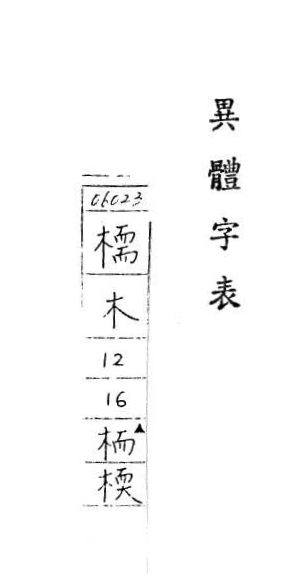 異體字表
06023
檽
木
12
16
栭▲
㮕